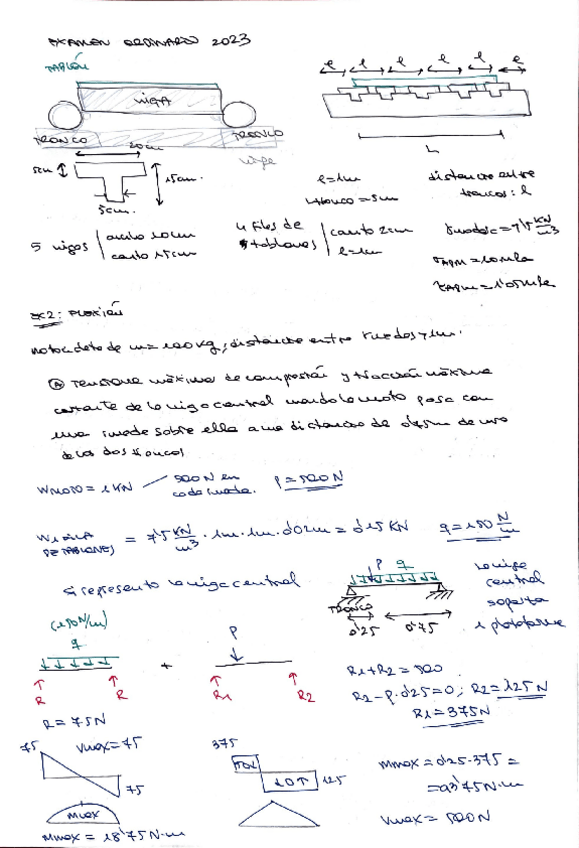 EXAMEN ORDINARIO 2023
TABLÓN
VIGA
TRONCO
TRONCO
20cm
5cm
15cm.
5cm.
l l l l l l
L
l = 1m
distancia entre troncos: l
5 vigas | ancho 10cm
canto 15cm
4 filas de tablones | canto 2cm
l = 1m
γmadera = 7'5 KN/m³
EX2: FLEXIÓN
motocicleta de m = 100 kg; distancia entre ruedas 1m.
Ⓐ Tensione máxima de compresión y tracción máxima
cortante de la viga central cuando la moto pasa con
una rueda sobre ella a una distancia de 0'75m de uno
de los dos troncos
WMOTO = 1 KN
500 N en cada rueda.
P = 500 N
= 7'5 KN/m³ · 1m · 1m · 0'02m = 0'15 KN
q = 150 N/m
Si represento la viga central
P q
TRONCO
0'25 0'75
la viga central soporta 1 plataforma
(150 N/m)
q
+
P
R R
R1 R2
R1 + R2 = 500
R2 - P · 0'25 = 0; R2 = 125 N
R1 = 375 N
R = 75 N
75
Vmax = 75
75
375
125
Mmax
Mmax = 0'25 · 375 =
= 93'75 N·m
Mmax = 18'75 N·m
Vmax = 500 N